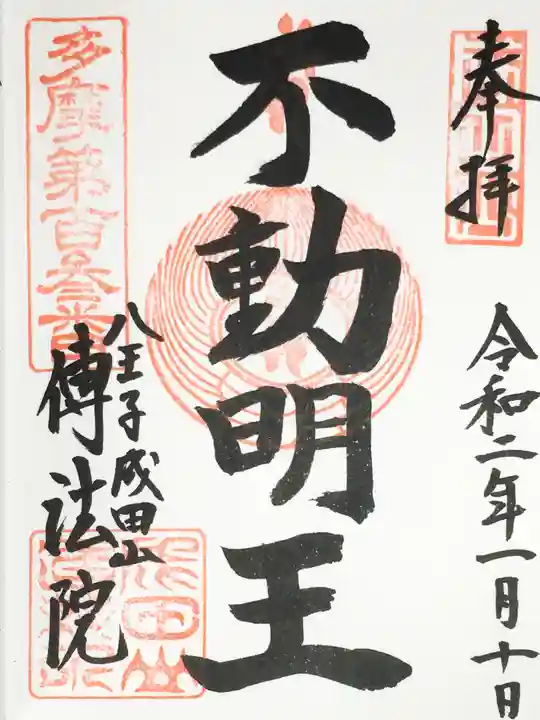 奉拝
令和二年一月十日
不動明王
多摩第百参番
八王子成田山
傳法院